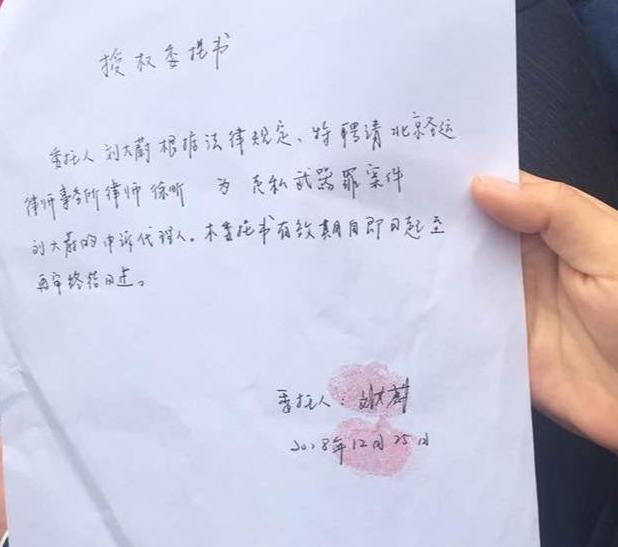 授权委托书
委托人刘大蔚根据法律规定、特聘请北京圣运
律师事务所律师徐昕 为 走私武器罪案件
刘大蔚的申诉代理人。本委托书有效期自即日起至
再审终结日止。
委托人:刘大蔚
2018年12月25日